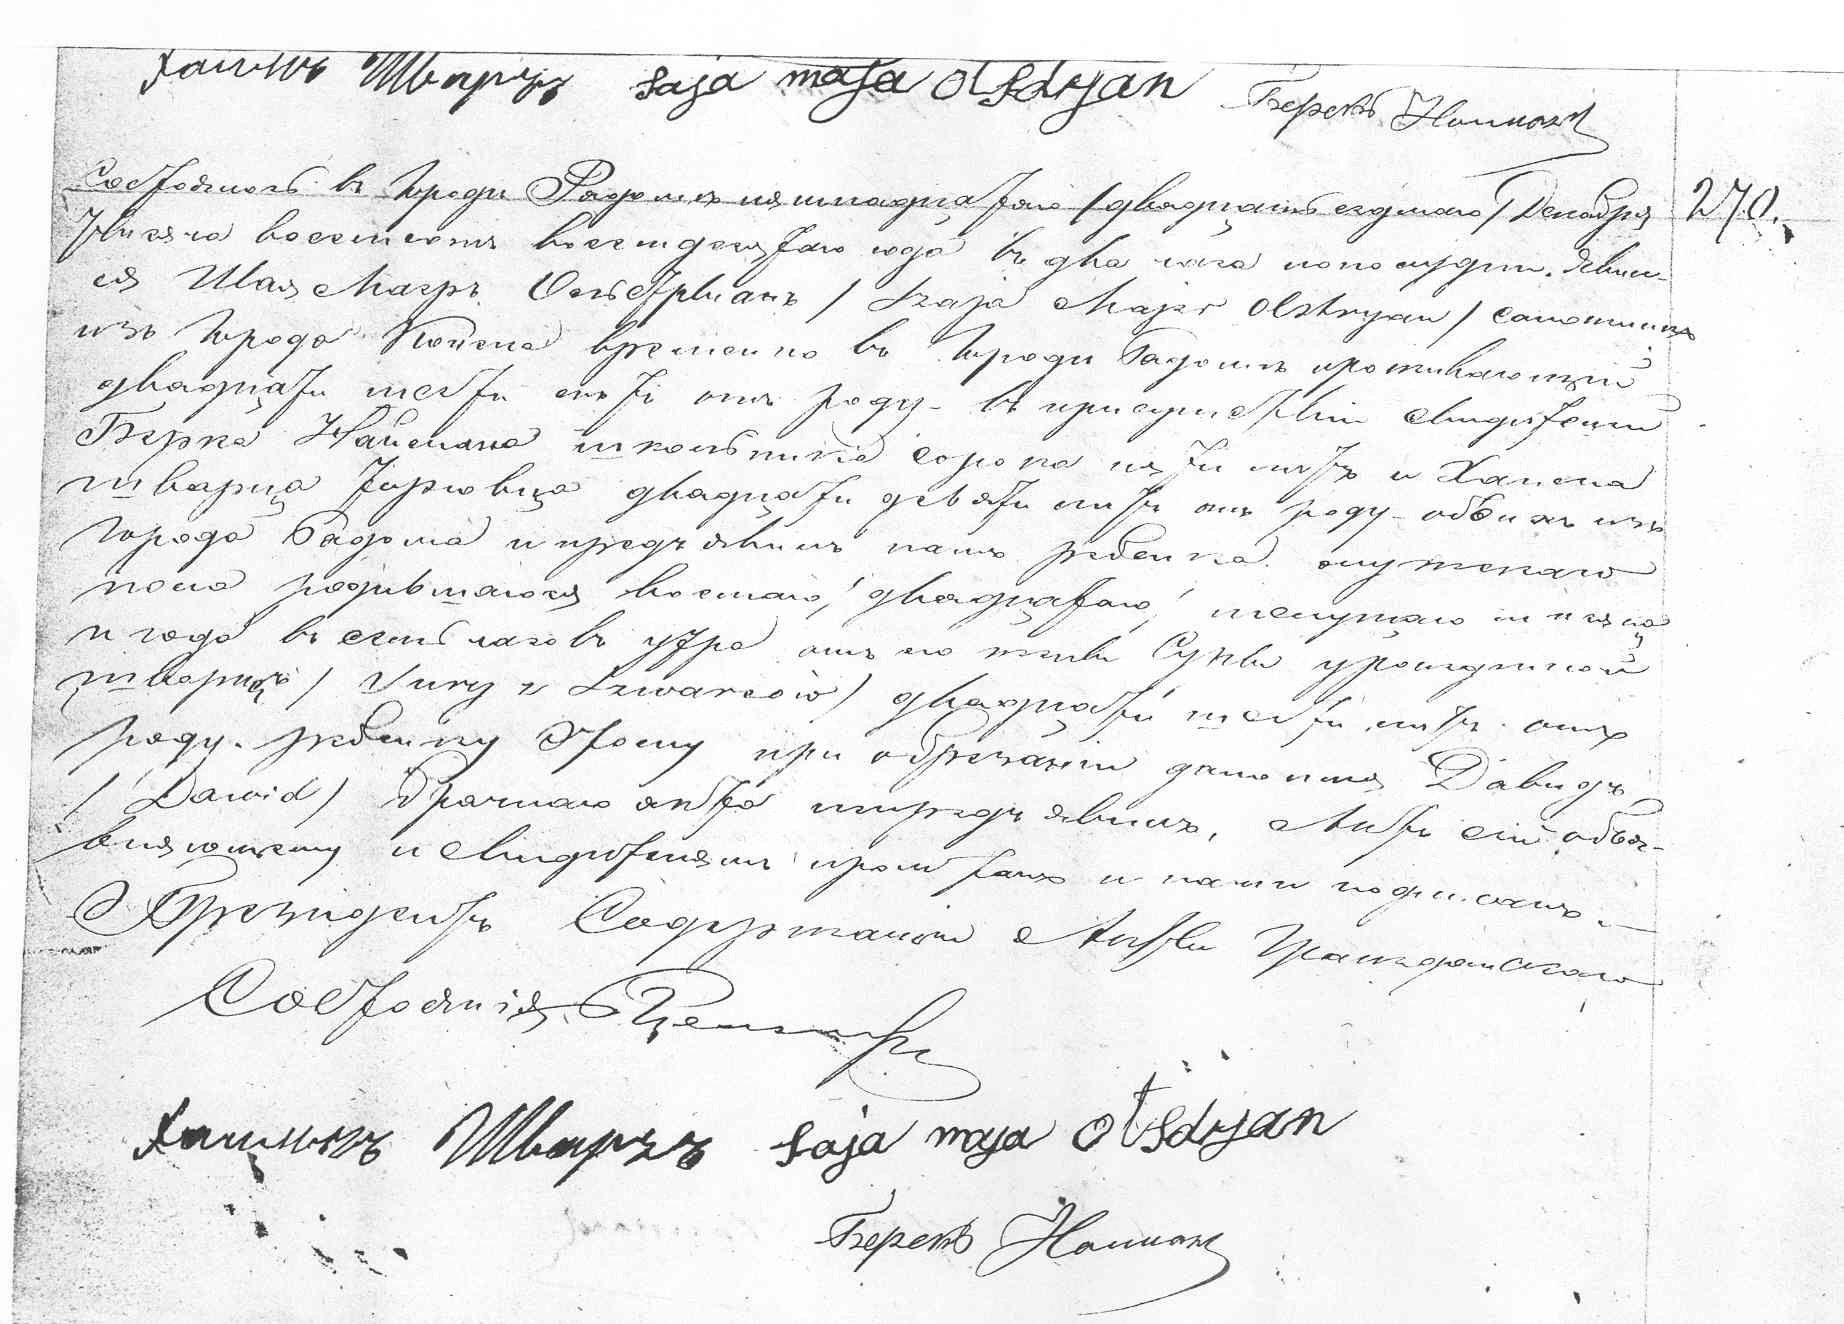 Шварцъ Saja maja Olsdryan Берекъ Найман
Состоялось въ городѣ Радомѣ пятнадцатаго /двадцать седьмаго/ Декабря 270.
тысяча восемьсотъ восемдесятаго года въ два часа пополудни. Явил-
ся Шая Маеръ Ольстрыанъ / Szaja Majer Olstryan /
изъ города временно въ городѣ Радомѣ проживающій
двадцати шести лѣтъ отъ роду въ присутствіи свидѣтелей
Берка Наймана школьника сорока пяти лѣтъ и Хаима
Шварца двадцати девяти лѣтъ отъ роду обоихъ изъ
города Радома и предъявилъ намъ ребенка мужескаго
пола родившагося восьмаго / двадцатаго / текущаго мѣсяца
и года въ семь часовъ утра отъ его жены Суры урожденной
Шварцъ / Sury z Szwarców / двадцати шести лѣтъ отъ
роду. ребенку этому при обрѣзаніи дано имя Давидъ
/ Dawid / Брачнаго акта не предъявилъ. Актъ сей объя-
вляющему и свидѣтелямъ прочитанъ и нами подписанъ.
Президентъ Содержащій Акты Гражданскаго
Состоянія
Шварцъ Saja maja Olsdryan
Берекъ Найман